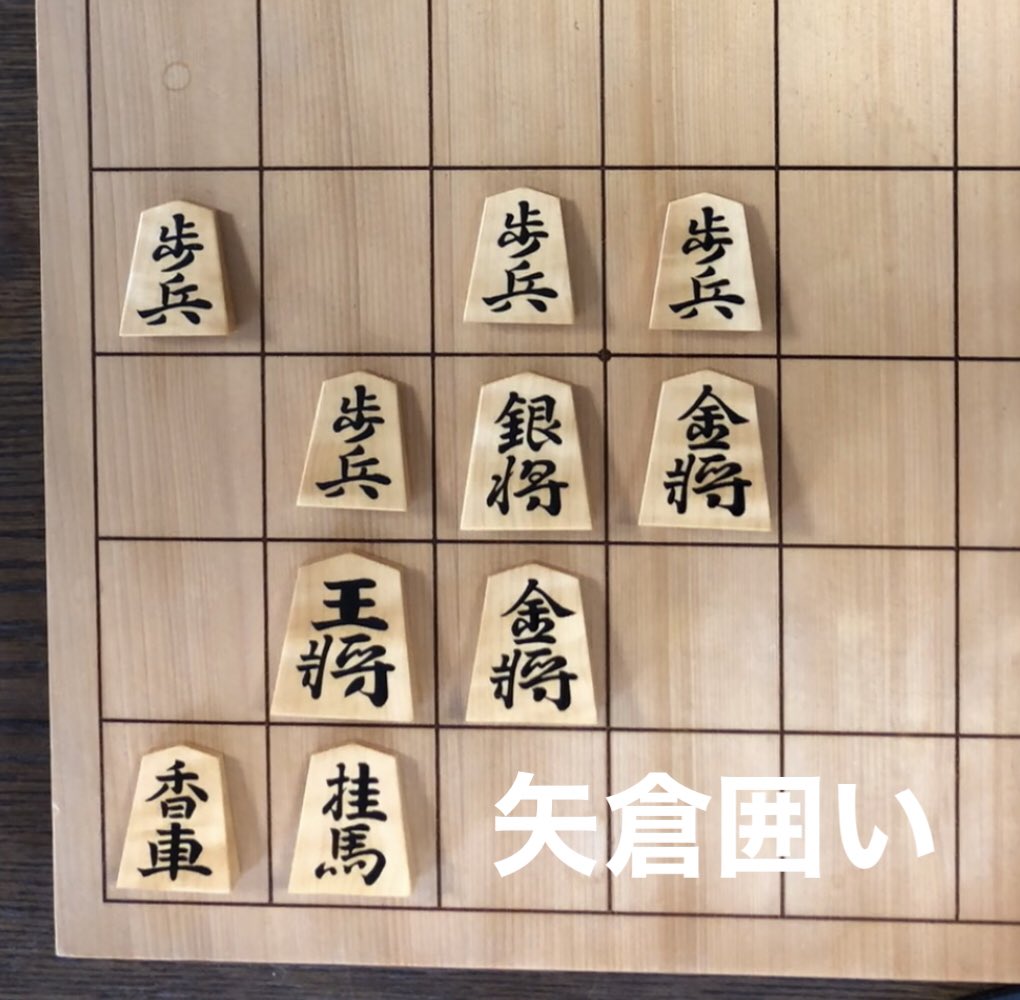 歩兵
歩兵
歩兵
歩兵
銀将
金将
王将
金将
香車
桂馬
矢倉囲い